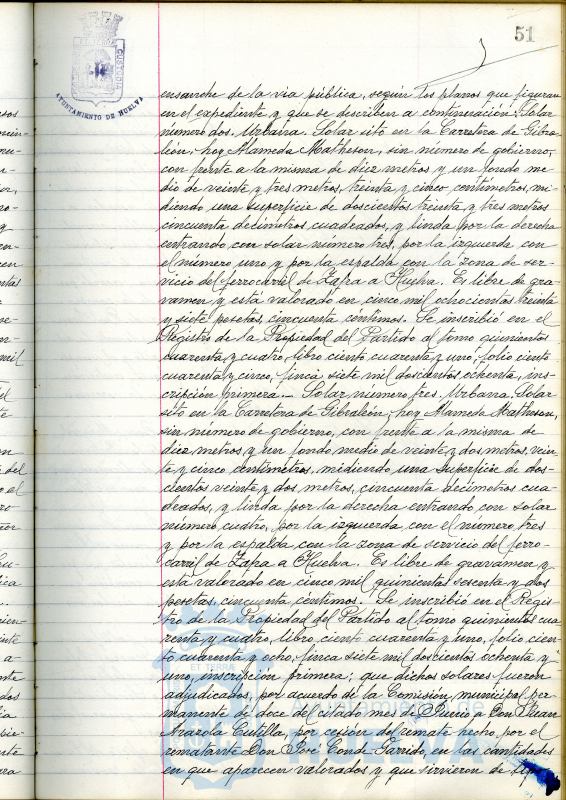 51
AYUNTAMIENTO DE HUELVA
CUSTODIA
ensanche de la via pública, según los planos que figuran
en el expediente y que se describen a continuación: Solar
número dos. Urbana. Solar sitó en la Carretera de Gibra-
león, hoy Alameda Matheson, sin número de gobierno,
con frente a la misma de diez metros y un fondo me-
dio de veinte y tres metros, treinta y cinco centímetros, mi-
diendo una superficie de doscientos treinta y tres metros
cincuenta decímetros cuadrados, y linda por la derecha
entrando con solar número tres, por la izquierda con
el número uno y por la espalda con la zona de ser-
vicio del ferrocarril de Zafra a Huelva. Es libre de gra-
vamen y está valorado en cinco mil ochocientas treinta
y siete pesetas, cincuenta centimos. Se inscribió en el
Registro de la Propiedad del Partido al tomo quinientos
cuarenta y cuatro, libro ciento cuarenta y uno, folio ciento
cuarenta y cinco, finca siete mil doscientos ochenta, ins-
cripción primera.- Solar número tres. Urbana. Solar
sitó en la Carretera de Gibraleón, hoy Alameda Matheson,
sin número de gobierno, con frente a la misma de
diez metros y un fondo medio de veinte y dos metros, vein-
te y cinco centímetros, midiendo una superficie de dos-
cientos veinte y dos metros, cincuenta decímetros cua-
drados, y linda por la derecha entrando con solar
número cuatro, por la izquierda con el número tres
y por la espalda con la zona de servicio del ferro-
carril de Zafra a Huelva. Es libre de gravamen y
está valorado en cinco mil quinientas sesenta y dos
pesetas, cincuenta céntimos. Se inscribió en el Regis-
tro de la Propiedad del Partido al tomo quinientos cua
renta y cuatro, libro ciento cuarenta y uno, folio cien-
to cuarenta y ocho, finca siete mil doscientos ochenta y
uno, inscripción primera; que dichos solares fueron
adjudicados, por acuerdo de la Comisión municipal per-
manente de doce del citado mes de Junio a Don Juan
Cutilla, por cesión del remate hecho por el
rematante Don José Conde Garrido, en las cantidades
en que aparecen valorados y que sirvieron de
ET TERRÆ
Ayuntamiento de
HUELVA